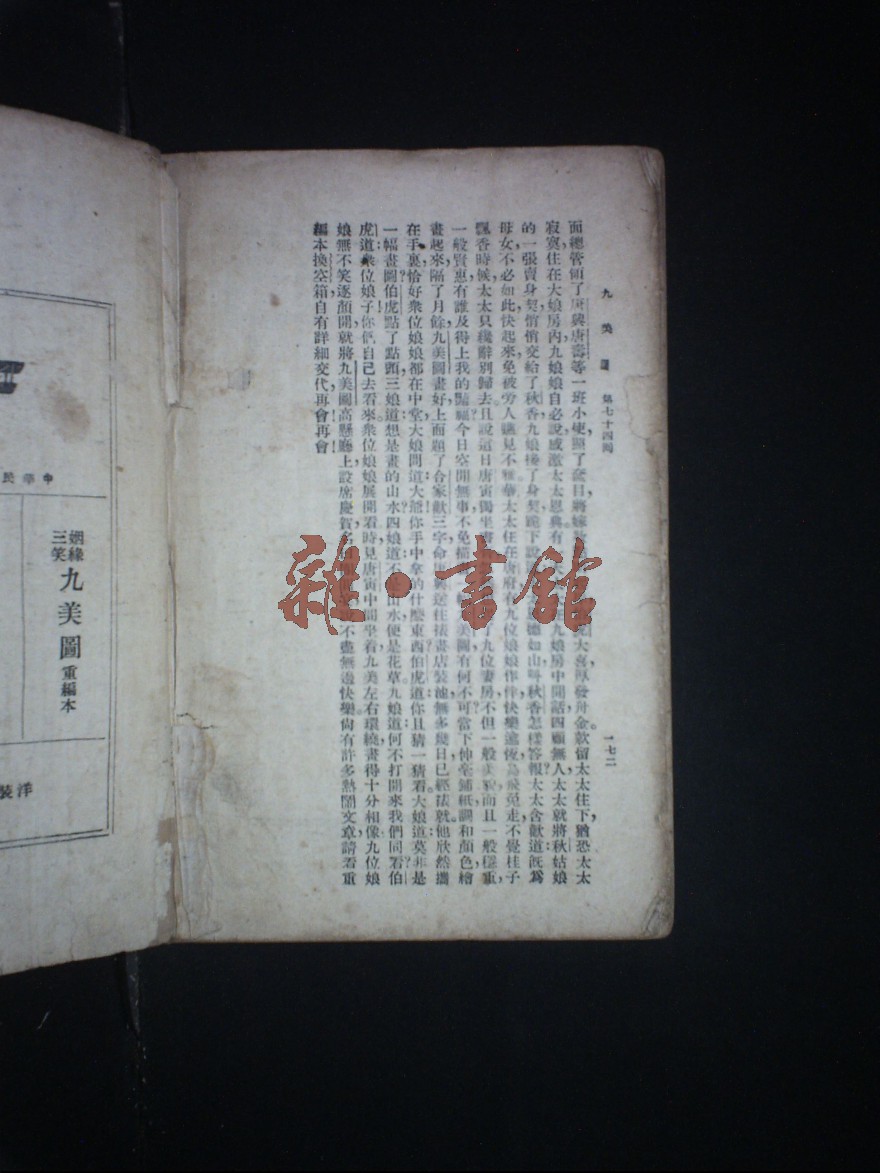 九美圖 第七十四回 一七二
面總管領了唐興唐壽等一班小使照了奩目將嫁 大喜厚發舟金欵留太太住下猶恐太太
寂寞住在大娘房內九娘娘自必說感激太太恩典有 在九娘房中閒話四顧無人太太就將秋姑娘
的一張賣身契悄悄交給了秋香九娘接了身契跪下說 恩德如山呌秋香怎樣答報太太含歡道旣爲
母女不必如此快起來免被旁人 見不雅華太太住在唐府有九位娘娘作伴快樂 兎走不覺桂子
飄香時候太太只 辭別歸去且說這日唐寅獨坐書 了九位妻房不但一般美貌而且一般穩重
一般賢惠有誰及得上我的豔福今日空閒無事不免 美圖有何不可當下伸毫鋪紙調和顏色繪
畫起來隔了月餘九美圖畫好上面題了合家歡三字命 送往裱畫店裝 無多幾日已經裱就他欣然攜
在手裏恰好衆位娘娘都在中堂大娘問道大爺你手中拿的什麼東西伯虎道你且猜一猜看大娘道莫非是
一幅畫圖伯虎點了點頭三娘道想是畫的山水四娘道不是山水便是花草九娘道何不打開來我們同看伯
虎道衆位娘子你們自己去看來衆位娘娘展開看時見唐寅中間坐着九美左右環繞畫得十分相像九位娘
娘無不笑逐顏開就將九美圖高懸廳上設席慶賀名 不盡無邊快樂尙有許多熱鬧文章請看重
編本換空箱自有詳細交代再會再會
雜·書館
中華民
三笑姻緣九美圖重編本
洋裝